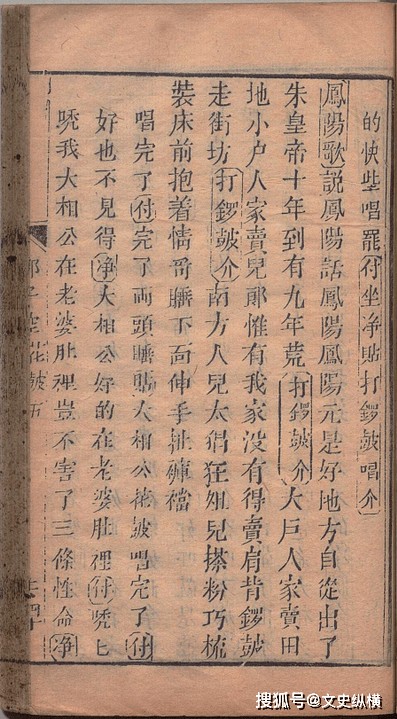 的快些唱罷付坐净貼打鑼皷唱介
鳳陽歌説鳳陽話鳳陽鳳陽元是好地方自從出了
朱皇帝十年到有九年荒打鑼皷介大戸人家賣田
地小户人家賣兒郎惟有我家没有得賣肩背鑼皷
走街坊打鑼皷介南方人兒太猖狂姐兒搽粉巧梳
裝床前抱着情哥睡下面伸手扯褲襠
唱完了付完了両頭睡貼大相公花皷唱完了付
好也不見得净大相公好的在老婆肚裡付唬七
唬我大相公在老婆肚裡豈不害了三條性命净
花皷
搜狐号@文史纵横